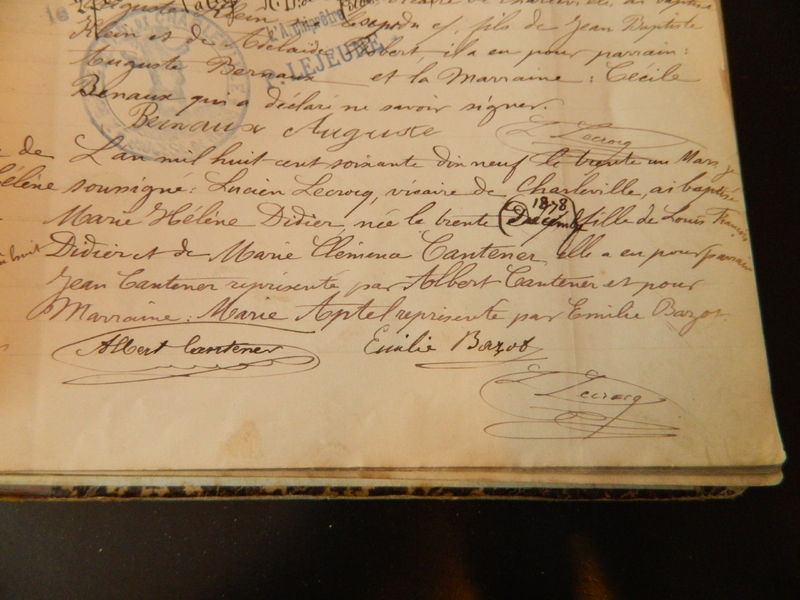 Klein et de Adelaïde Robert, il a eu pour parrain:
LEJEUNE
Auguste Bernaux et la Marraine: Cécile
Benaux qui a déclaré ne savoir signer.
Bernaux Auguste
L Lecrocq
de L'an mil huit cent soixante dix neuf le trente un Mars, je
Hélène soussigné: Lucien Lecrocq, vicaire de Charleville, ai baptisé
1878
Marie Hélène Didier, née le trente Décembre fille de Louis François
huit Didier et de Marie Clémence Cantener, elle a eu pour parrain
Jean Cantener représenté par Albert Cantener et pour
Marraine: Marie Aptel représente par Emilie Bazot.
Albert Cantener Emilie Bazot
L Lecrocq